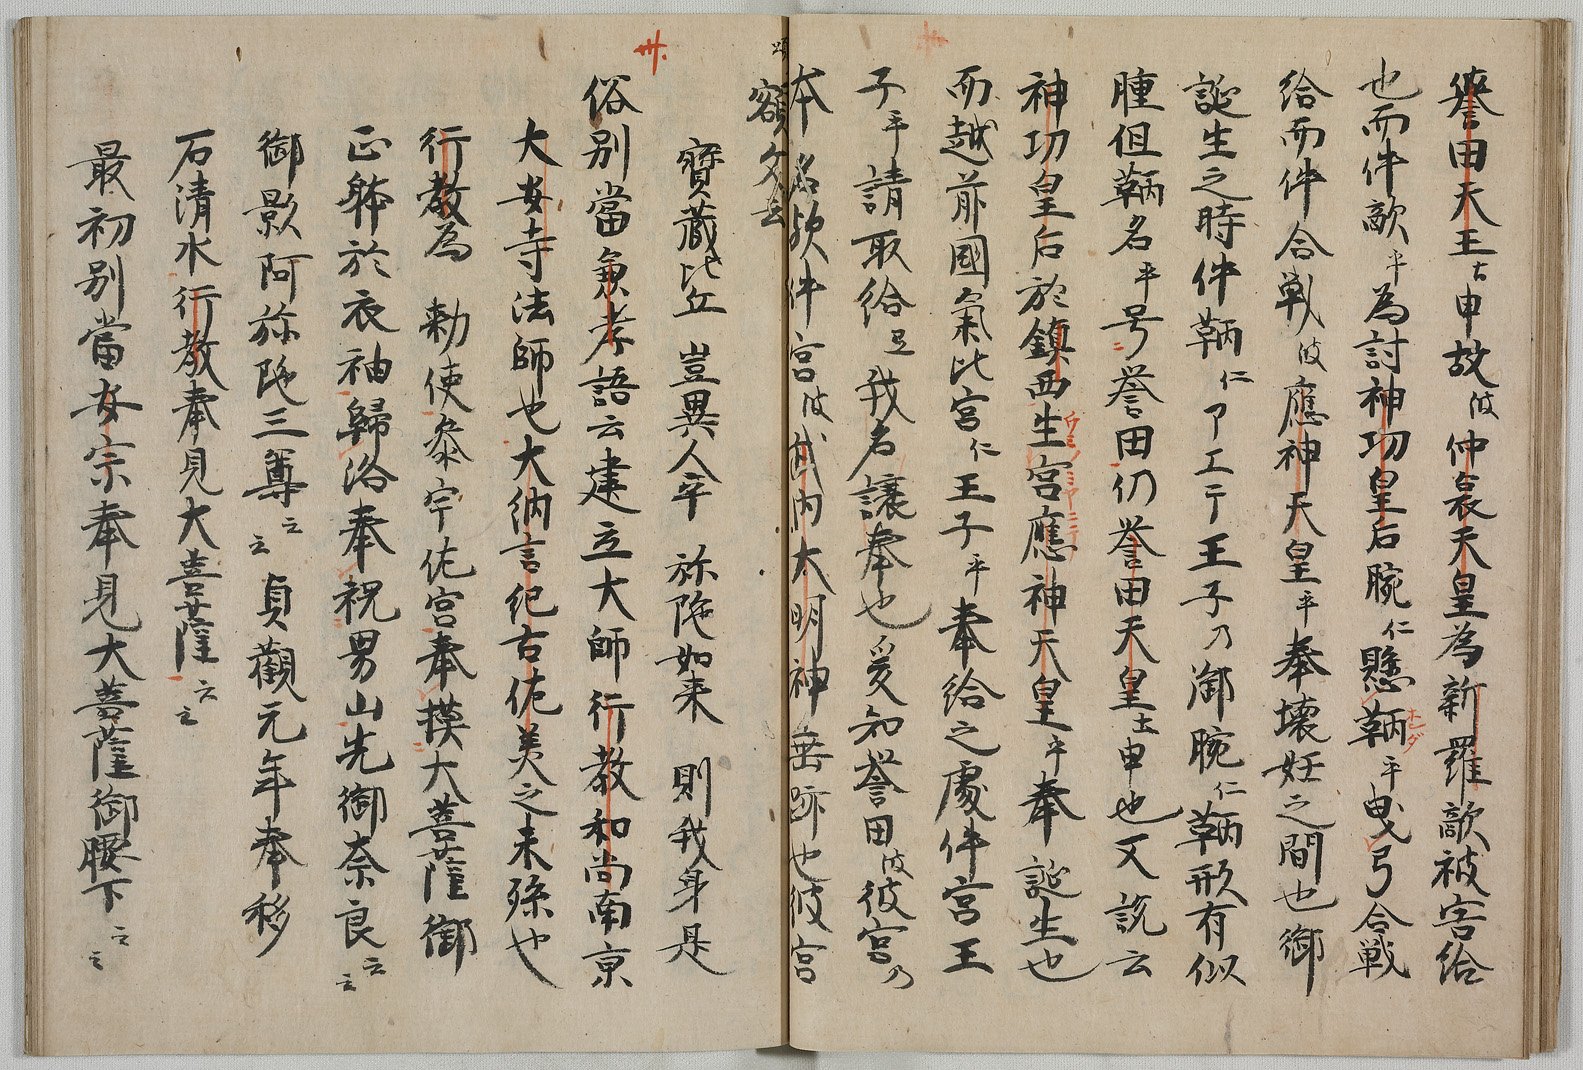 誉田天王ト申故波仲哀天皇為新羅敵被害給
也而件敵乎為討神功皇后腕仁懸鞆乎曳弓合戦
ホンダ
給而件合戦波應神天皇乎奉壊妊之間也御
誕生之時件鞆仁アエテ王子乃御腕仁鞆形有似
腫但鞆名乎号誉田仍誉田天皇ト申也又説云
神功皇后於鎮西生宮應神天皇乎奉誕生也
ウミノミヤニテ
而越前國氣比宮仁王子乎奉給之處件宮王
子乎請取給天我名譲奉也爰知誉田波彼宮乃
本名欤件宮波武内大明神垂跡也彼宮
額文云
寶蔵比丘 豈異人乎 弥陀如来 則我身是
俗別當兼孝語云建立大師行教和尚南京
大安寺法師也大納言紀古佐美之末孫也
行教為 勅使参宇佐宮奉摸大菩薩御
正躰於衣袖歸洛奉祝男山先御奈良云云
御影阿弥陀三尊云云 貞觀元年奉移
石清水行教奉見大菩薩云云
最初別當安宗奉見大菩薩御腰下云云